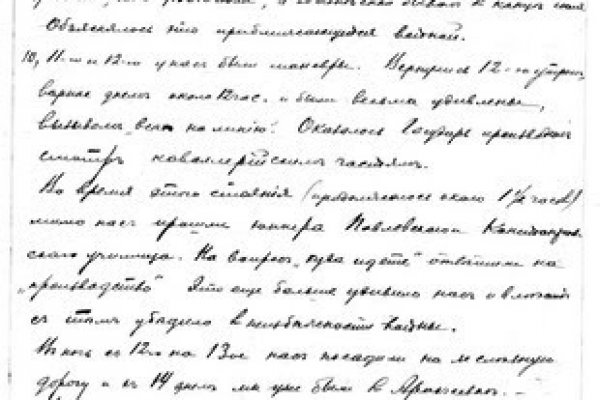 Объяснялось это приближающейся войной.
10, 11-го и 12-го у нас были маневры. Вернулись 12-го утром,
вернее днем около 12 час. и были весьма удивлены,
вызовом „всех на линию“. Оказалось Государь производил
смотр кавалерийским частям.
Во время этого стояния (продолжалось около 1½ часов)
мимо нас прошли юнкера Павловского
училища. На вопрос „куда идете“ отвечали на
„производство“ Это еще больше удивило нас и вместе
с тем убедило в неизбежности войны.
В ночь с 12го на 13ое нас посадили на железную
дорогу и к 14 днем мы уже были в